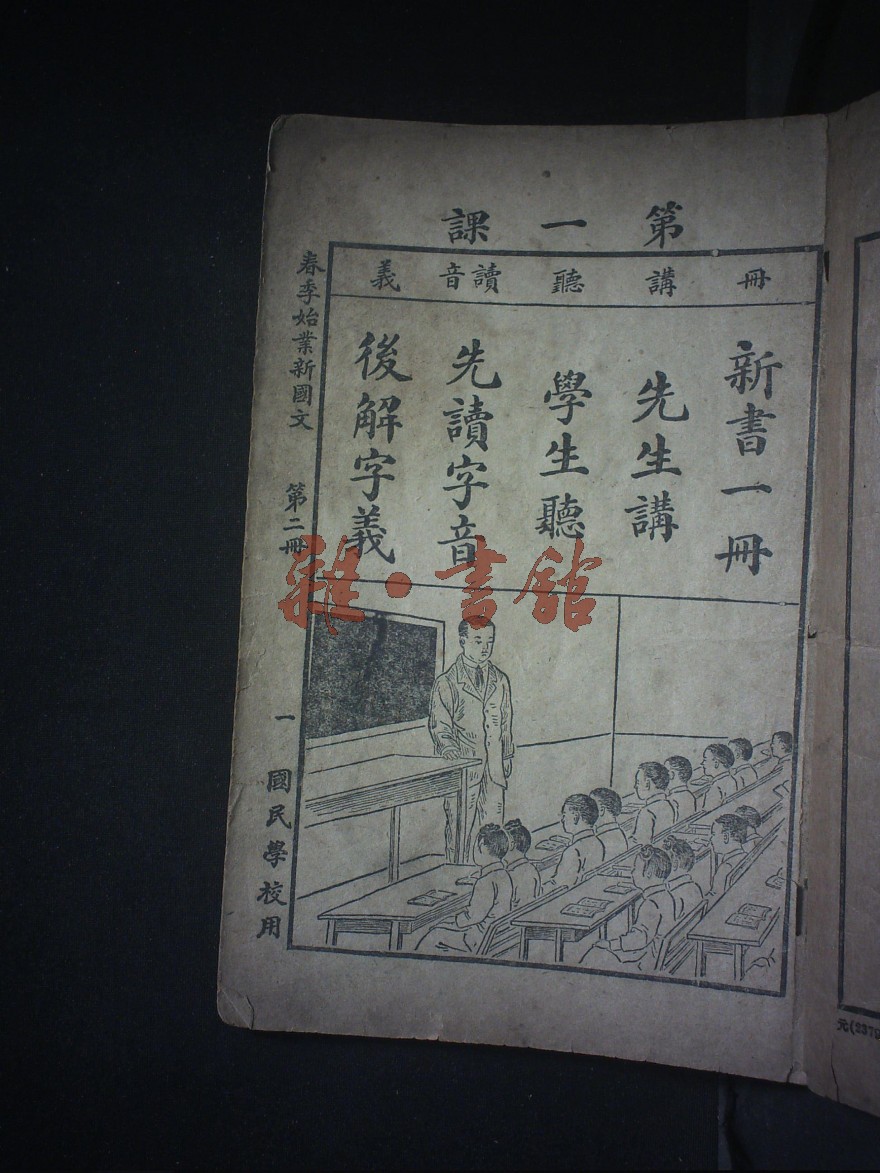 第一課
冊 講 聽 讀音 義
新書一冊
先生講
學生聽
先讀字音
後解字義
春季始業新國文 第二冊 一 國民學校用
雜·書館
元(2379